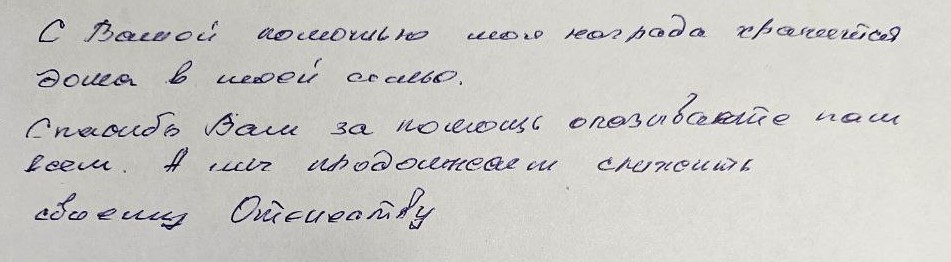 С Вашой помощью моя награда хранится
дома в моей семью.
Спасибо Вам за помощь оказываюте нам
всем. А мы продолжаем служить
своему Отечеству